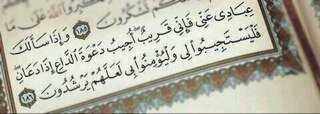 تَشْكُرُونَ ١٨٥ وَإِذَا سَأَلَكَ
عِبَادِى عَنِّى فَإِنِّى قَرِيبٌ أُجِيبُ دَعْوَةَ ٱلدَّاعِ إِذَا دَعَانِ
فَلْيَسْتَجِيبُوا۟ لِى وَلْيُؤْمِنُوا۟ بِى لَعَلَّهُمْ يَرْشُدُونَ ١٨٦